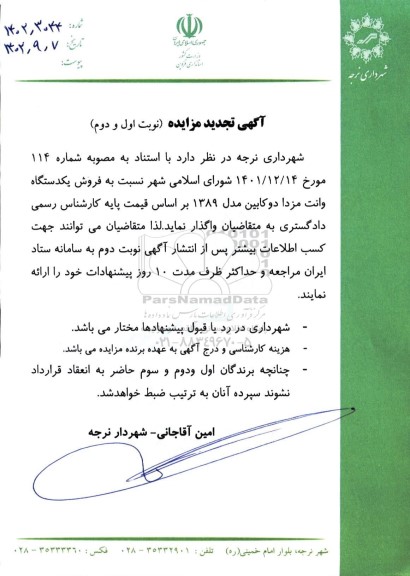 شماره: ۱۴۰۲,۳۰۴۴
تاریخ: ۱۴۰۲,۹,۷
پیوست:
جمهوری اسلامی ایران
وزارت کشور
استانداری قزوین
شهرداری نرجه
آگهی تجدید مزایده (نوبت اول و دوم)
شهرداری نرجه در نظر دارد با استناد به مصوبه شماره ۱۱۴
مورخ ۱۴۰۱/۱۲/۱۴ شورای اسلامی شهر نسبت به فروش یکدستگاه
وانت مزدا دوکابین مدل ۱۳۸۹ بر اساس قیمت پایه کارشناس رسمی
دادگستری به متقاضیان واگذار نماید.لذا متقاضیان می توانند جهت
کسب اطلاعات بیشتر پس از انتشار آگهی نوبت دوم به سامانه ستاد
ایران مراجعه و حداکثر ظرف مدت ۱۰ روز پیشنهادات خود را ارائه
نمایند.
ParsNamadData
۰۲۱-۸۸۳۴۹۶۷۰-۵
- شهرداری در رد یا قبول پیشنهادها مختار می باشد.
- هزینه کارشناسی و درج آگهی به عهده برنده مزایده می باشد.
- چنانچه برندگان اول ودوم و سوم حاضر به انعقاد قرارداد
نشوند سپرده آنان به ترتیب ضبط خواهدشد.
امین آقاجانی- شهردار نرجه
شهر نرجه، بلوار امام خمینی(ره) تلفن : ۳۵۳۳۲۹۰۱ - ۰۲۸ فکس : ۳۵۳۳۳۳۶۰ - ۰۲۸